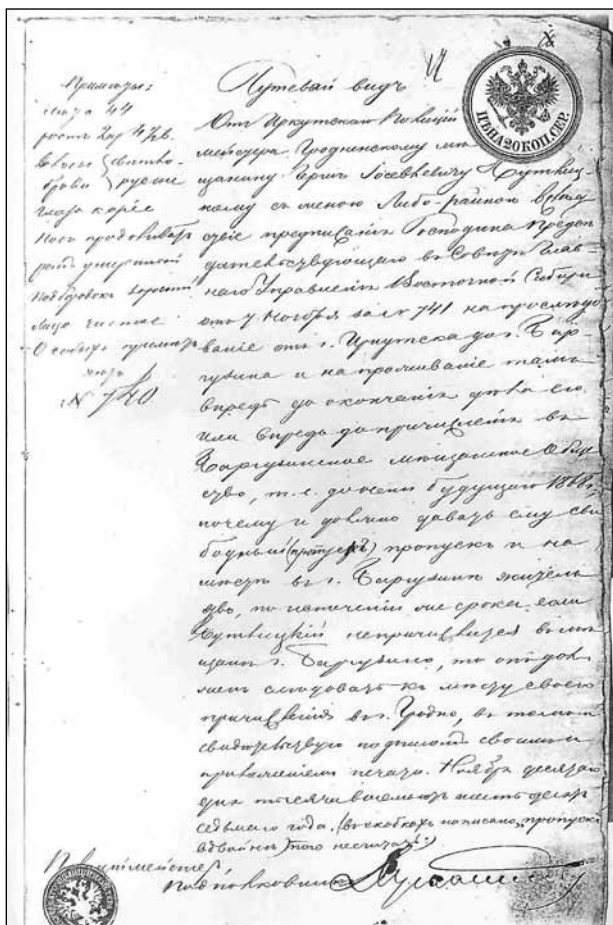 Приметы:
лета 44
рост 2 ар 4 1/2 в.
волосы } светло-
брови } русые
глаза карие
носъ продолговатъ
ротъ умеренный
подбородокъ
лицо чистое
Особыхъ приметъ
нетъ
№ 740
Путевый видъ
ЦѢНА 20 КОП. СЕР.
Отъ Иркутскаго Полицій
мейстера Гродненскому ме
щанину Іосевѣевичу
кому съ женою Либо-райною
ствіе предписанія Господина Предсѣ
дательствующаго въ Совѣтѣ Глав
наго Управленія Восточной Сибири
отъ 7 Ноября за № 741 на
ваніе отъ г. Иркутска до г. Бар
гузина и на проживаніе тамъ
впредь до окончанія дѣла его
или впредь до причисленія въ
Баргузинское мещанское обще
ство, т. е. до будущаго 1868 г.
почему и должно давать ему сво
бодный (пропускъ) пропускъ и на
место въ г. Баргузинѣ житель
ство, по истеченіи же срока если
Хутвицкій непричислится въ ме
щане г. Баргузина, то онъ дол
женъ следовать къ месту своего
причисленія въ г. Гродно, въ томъ
свидетельствую подписомъ своимъ и
приложеніемъ печати. Ноября
дня тысяча восемьсотъ шестьдесятъ
седьмаго года. (въ скобкахъ написано „пропускъ
вдвойне) того несчитать:)
Полиціймейстеръ
Подполковникъ